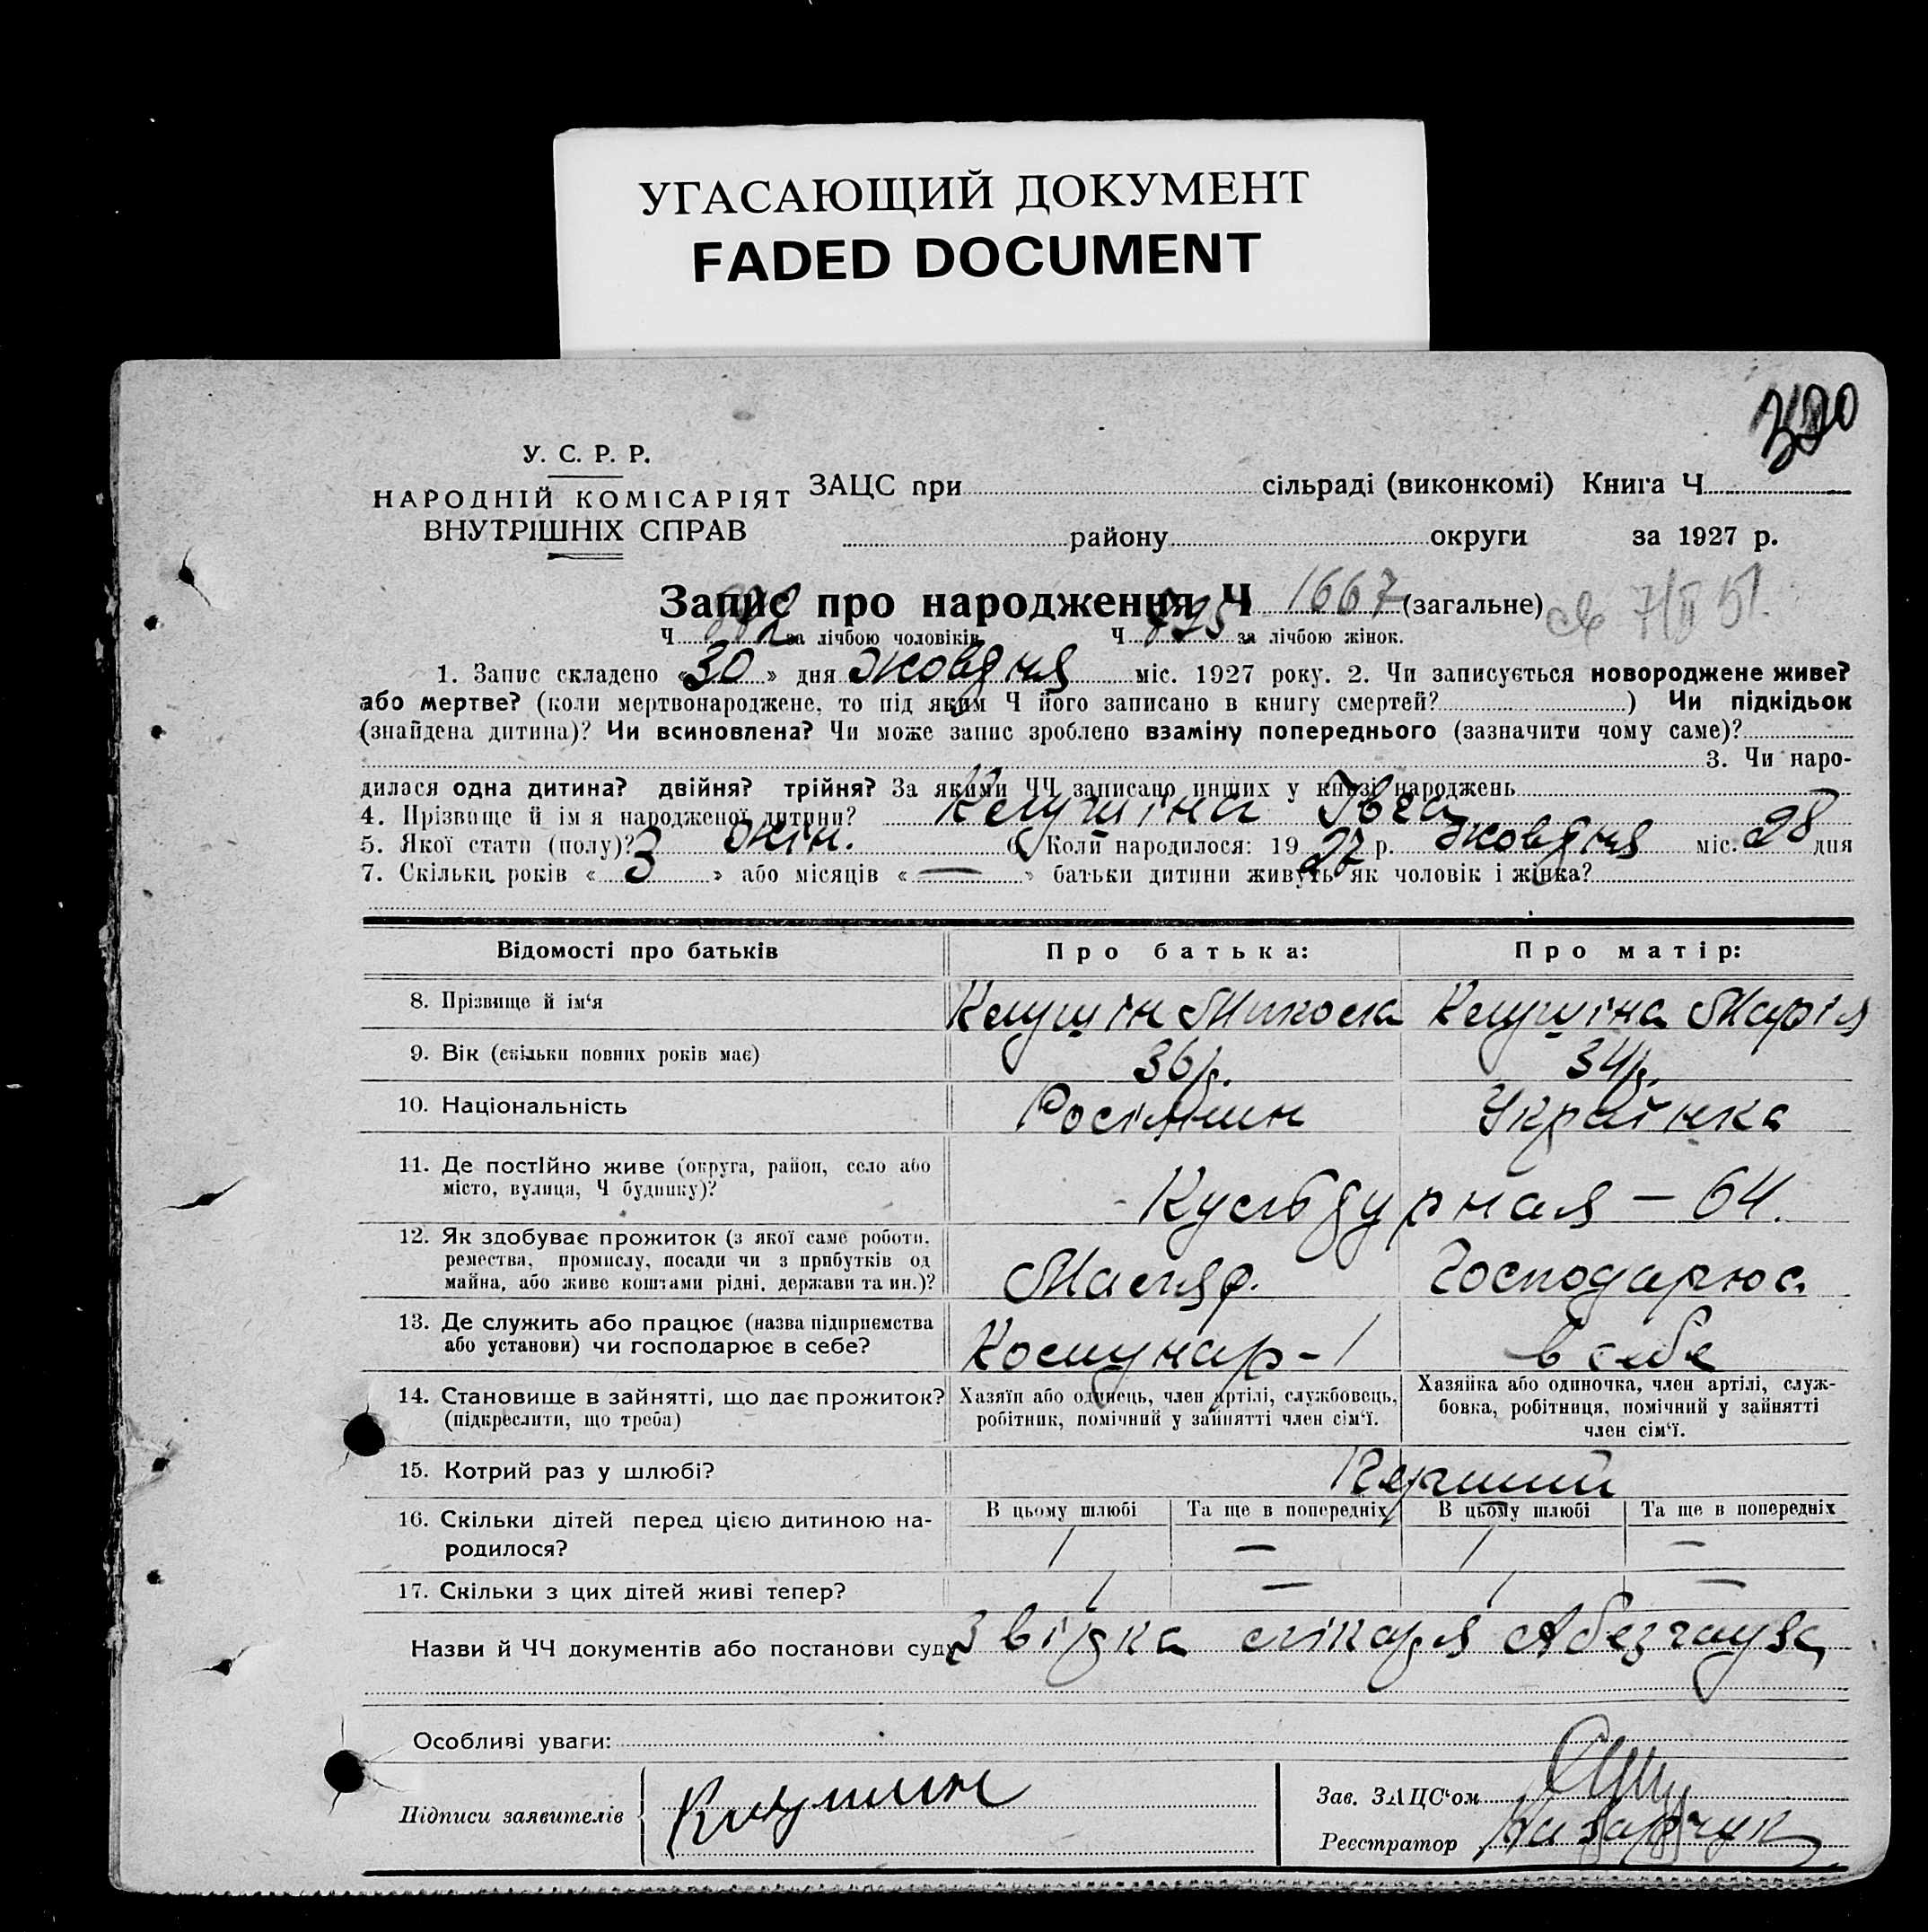 УГАСАЮЩИЙ ДОКУМЕНТ
FADED DOCUMENT
320
У. С. Р. Р.
НАРОДНІЙ КОМІСАРІЯТ
ВНУТРІШНІХ СПРАВ
ЗАЦС при сільраді (виконкомі) Книга Ч
району округи за 1927 р.
Запис про народження Ч 1667 (загальне) 7/II 51.
Ч за лічбою чоловіків Ч 795 за лічбою жінок.
1. Запис складено «30» дня жовдня міс. 1927 року. 2. Чи записується новороджене живе?
або мертве? (коли мертвонароджене, то під яким Ч його записано в книгу смертей? ) Чи підкідьок
(знайдена дитина)? Чи всиновлена? Чи може запис зроблено взаміну попереднього (зазначити чому саме)?
3. Чи наро-
дилася одна дитина? двійня? трійня? За якими ЧЧ записано инших у книзі народжень
4. Прізвище й ім я народженої дитини?
5. Якої стати (полу)? жін. 6. Коли народилося: 1927 р. жовдня міс. 28 дня
7. Скільки років «3» або місяців «—» батьки дитини живуть як чоловік і жінка?
Відомості про батьків
Про батька:
Про матір:
8. Прізвище й ім‘я
Микола
Марія
9. Вік (скільки повних років має)
36 р.
34 р.
10. Національність
Росіянин
Українка
11. Де постійно живе (округа, район, село або
місто, вулиця, Ч будинку)?
Культурная — 64.
12. Як здобуває прожиток (з якої саме роботи,
ремества, промислу, посади чи з прибутків од
майна, або живе коштами рідні, держави та ин.)?
Маляр.
Господарює
13. Де служить або працює (назва підприємства
або установи) чи господарює в себе?
Комунар - 1
в себе
14. Становище в зайнятті, що дає прожиток?
(підкреслити, що треба)
Хазяїн або одинець, член артілі, службовець,
робітник, помічний у зайнятті член сім‘ї.
Хазяйка або одиночка, член артілі, служ-
бовка, робітниця, помічний у зайнятті
член сім‘ї.
15. Котрий раз у шлюбі?
Перший
16. Скільки дітей перед цією дитиною на-
родилося?
В цьому шлюбі
Та ще в попередніх
В цьому шлюбі
Та ще в попередніх
1 — 1 —
17. Скільки з цих дітей живі тепер?
1 — 1 —
Назви й ЧЧ документів або постанови суду Звідка лікаря Абезгауза
Особливі уваги:
Підписи заявителів
Зав. ЗАЦС‘ом
Реєстратор